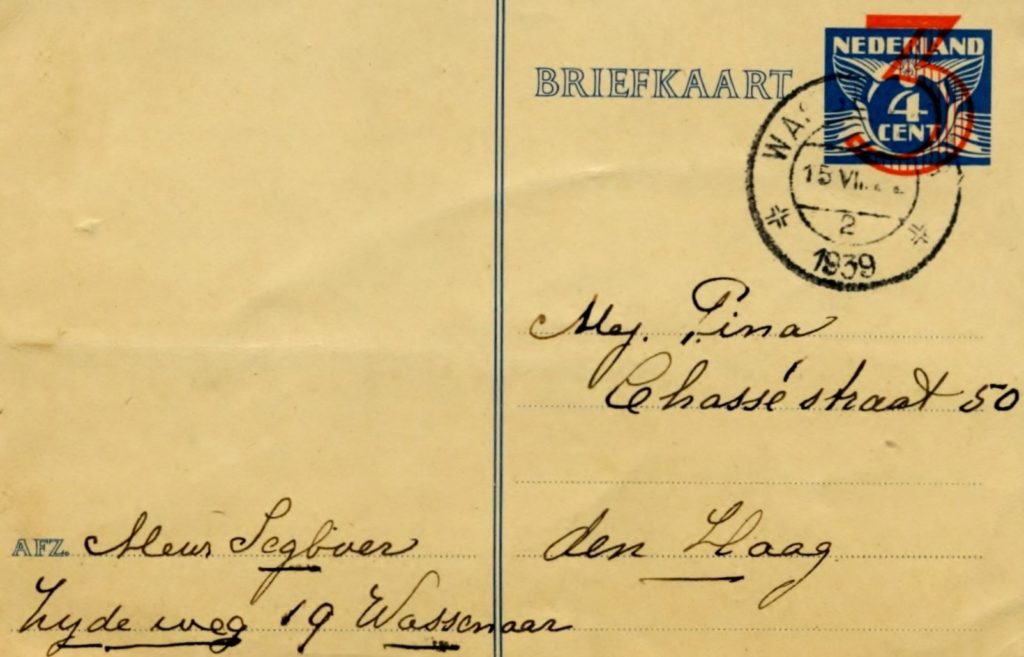 BRIEFKAART
NEDERLAND
3
4
CENT
15 VII
2
1939
Mej. Pina
Chasséstraat 50
den Haag
AFZ. Meur Segboer
Zyde weg 19 Wassenaar